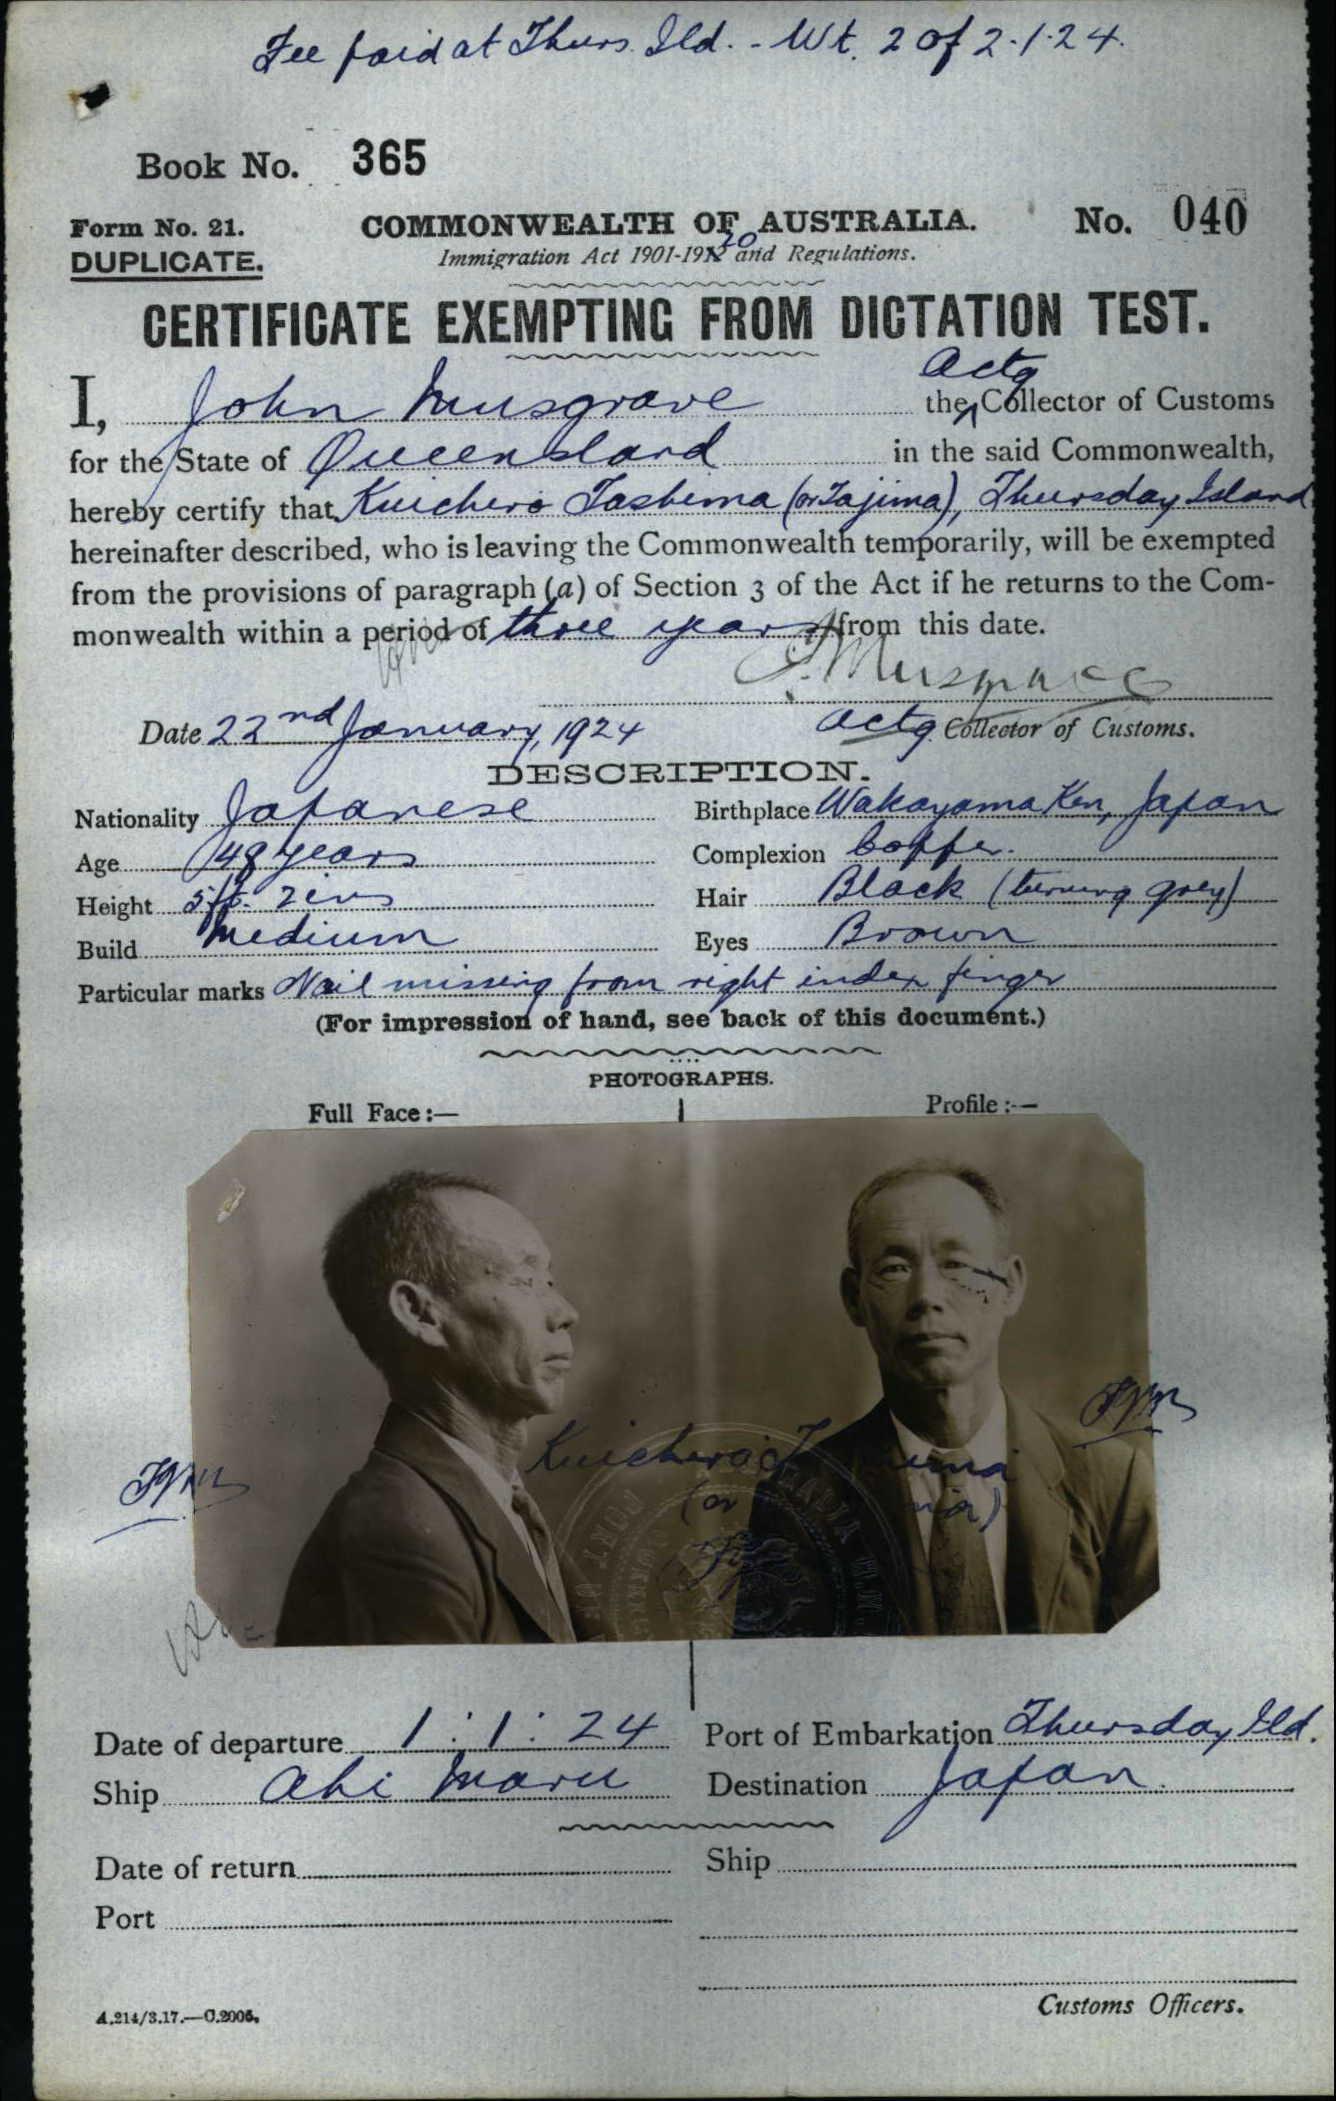 Fee paid at Thurs. Ild. - Wt. 2 of 2.1.24.
Book No. 365
Form No. 21. COMMONWEALTH OF AUSTRALIA. No. 040
DUPLICATE. Immigration Act 1901-1920 and Regulations.
CERTIFICATE EXEMPTING FROM DICTATION TEST.
I, John Musgrave the Actg Collector of Customs
for the State of Queensland in the said Commonwealth,
hereby certify that Kuichero Tashima (or Tajima), Thursday Island
hereinafter described, who is leaving the Commonwealth temporarily, will be exempted
from the provisions of paragraph (a) of Section 3 of the Act if he returns to the Com-
monwealth within a period of three years from this date.
J. Musgrave
Date 22nd January, 1924 Actg Collector of Customs.
DESCRIPTION.
Nationality Japanese Birthplace Wakayama Ken, Japan
Age 48 years Complexion Copper.
Height 5ft. 2ins Hair Black (turning grey)
Build Medium Eyes Brown
Particular marks Nail missing from right index finger
(For impression of hand, see back of this document.)
PHOTOGRAPHS.
Full Face:— Profile:—
Kuichero T
(or
Date of departure 1:1:24 Port of Embarkation Thursday Ild.
Ship Aki Maru Destination Japan.
Date of return Ship
Port
Customs Officers.
A.214/3.17.—C.2005.